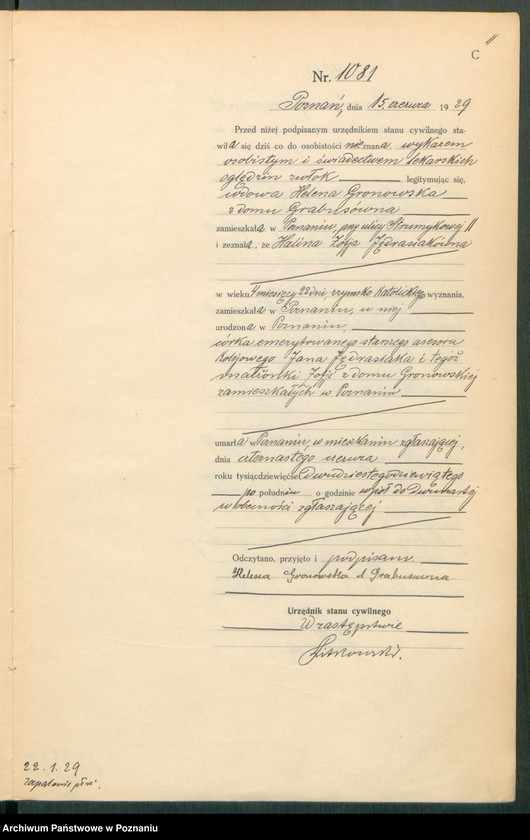 C
Nr. 1081
Poznań, dnia 15. czerwca 1929
Przed niżej podpisanym urzędnikiem stanu cywilnego sta-
wiła się dziś co do osobistości nieznana, wykazem
osobistym i świadectwem lekarskich
oględzin zwłok legitymując się,
wdowa Helena Gronowska
z domu Grabusówna
zamieszkała w Poznaniu, przy ulicy Strumykowej 11
i zeznała, że Halina Zofja Jędrasiakówna
w wieku 4 miesięcy 22 dni, rzymsko katolickiego wyznania,
zamieszkała w Poznaniu, u niej
urodzona w Poznaniu,
córka emerytowanego starszego asesora
kolejowego Jana Jędrasiaka i tegoż
małżonki Zofji z domu Gronowskiej
zamieszkałych w Poznaniu
umarła w Poznaniu, w mieszkaniu zgłaszającej,
dnia czternastego czerwca
roku tysiącdziewięćset dwudziestegodziewiątego
po południu o godzinie wpół do dwunastej
w obecności zgłaszającej
Odczytano, przyjęto i podpisano
Helena Gronowska d Grabusówna
Urzędnik stanu cywilnego
W zastępstwie
22.1.29
zapalenie płuc.
Archiwum Państwowe w Poznaniu